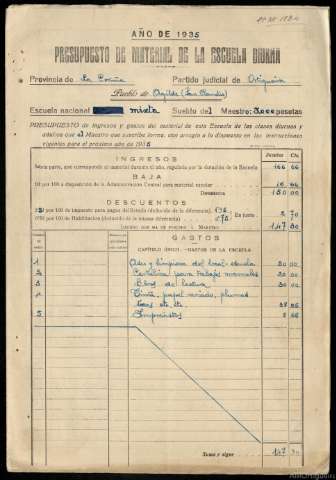 AÑO DE 1935
PRESUPUESTO DE MATERIAL DE LA ESCUELA DIURNA
Provincia de La Coruña Partido judicial de Ortigueira
Pueblo de
Escuela nacional mixta Sueldo del Maestro: 3.000 pesetas
PRESUPUESTO de ingresos y gastos del material de esta Escuela de las clases diurnas y
adultos que el Maestro que suscribe forma, con arreglo a lo dispuesto en las instrucciones
vigentes para el próximo año de 1935
Pesetas Cts.
INGRESOS
Sexta parte, que corresponde al material durante el año, regulada por la dotación de la Escuela 166 66
BAJA
10 por 100 a disposición de la Administración Central para material escolar 16 66
Diferencia 150 00
DESCUENTOS
por 100 de impuesto para pagos del Estado (deducida de la diferencia)
por 100 de Habilitación (deducido de la misma diferencia) En junto 2 70
Líquido que ha de percibir el Maestro 147 30
GASTOS
CAPÍTULO ÚNICO.—GASTOS DE LA ESCUELA
1 Aseo y limpieza del local-escuela 30 00
2 Cartulina para trabajos manuales 20 00
3 Libros de lectura 30 00
4 Tinta, papel rayado, plumas
5 Imprevistos
Suma y sigue 147 30